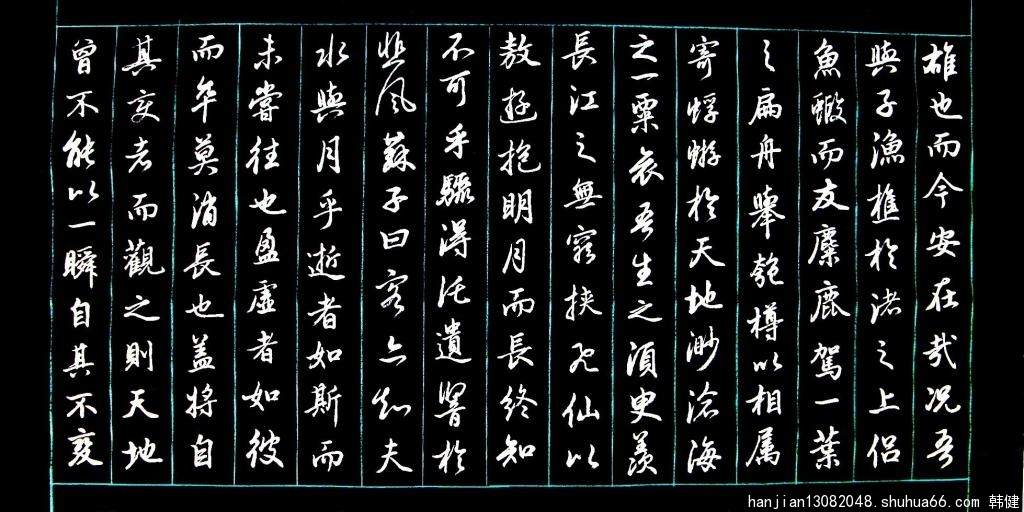 雄也而今安在哉况吾
與子漁樵於渚之上侣
魚蝦而友麋鹿駕一葉
之扁舟舉匏樽以相属
寄蜉蝣於天地渺滄海
之一粟哀吾生之須臾羨
長江之無窮挾飛仙以
敖遊抱明月而長終知
不可乎驟得託遺響於
悲風蘇子曰客亦知夫
水與月乎逝者如斯而
未嘗往也盈虛者如彼
而卒莫消長也盖將自
其变者而觀之則天地
曾不能以一瞬自其不变
hanjian13082048.shuhua66.com 韩健